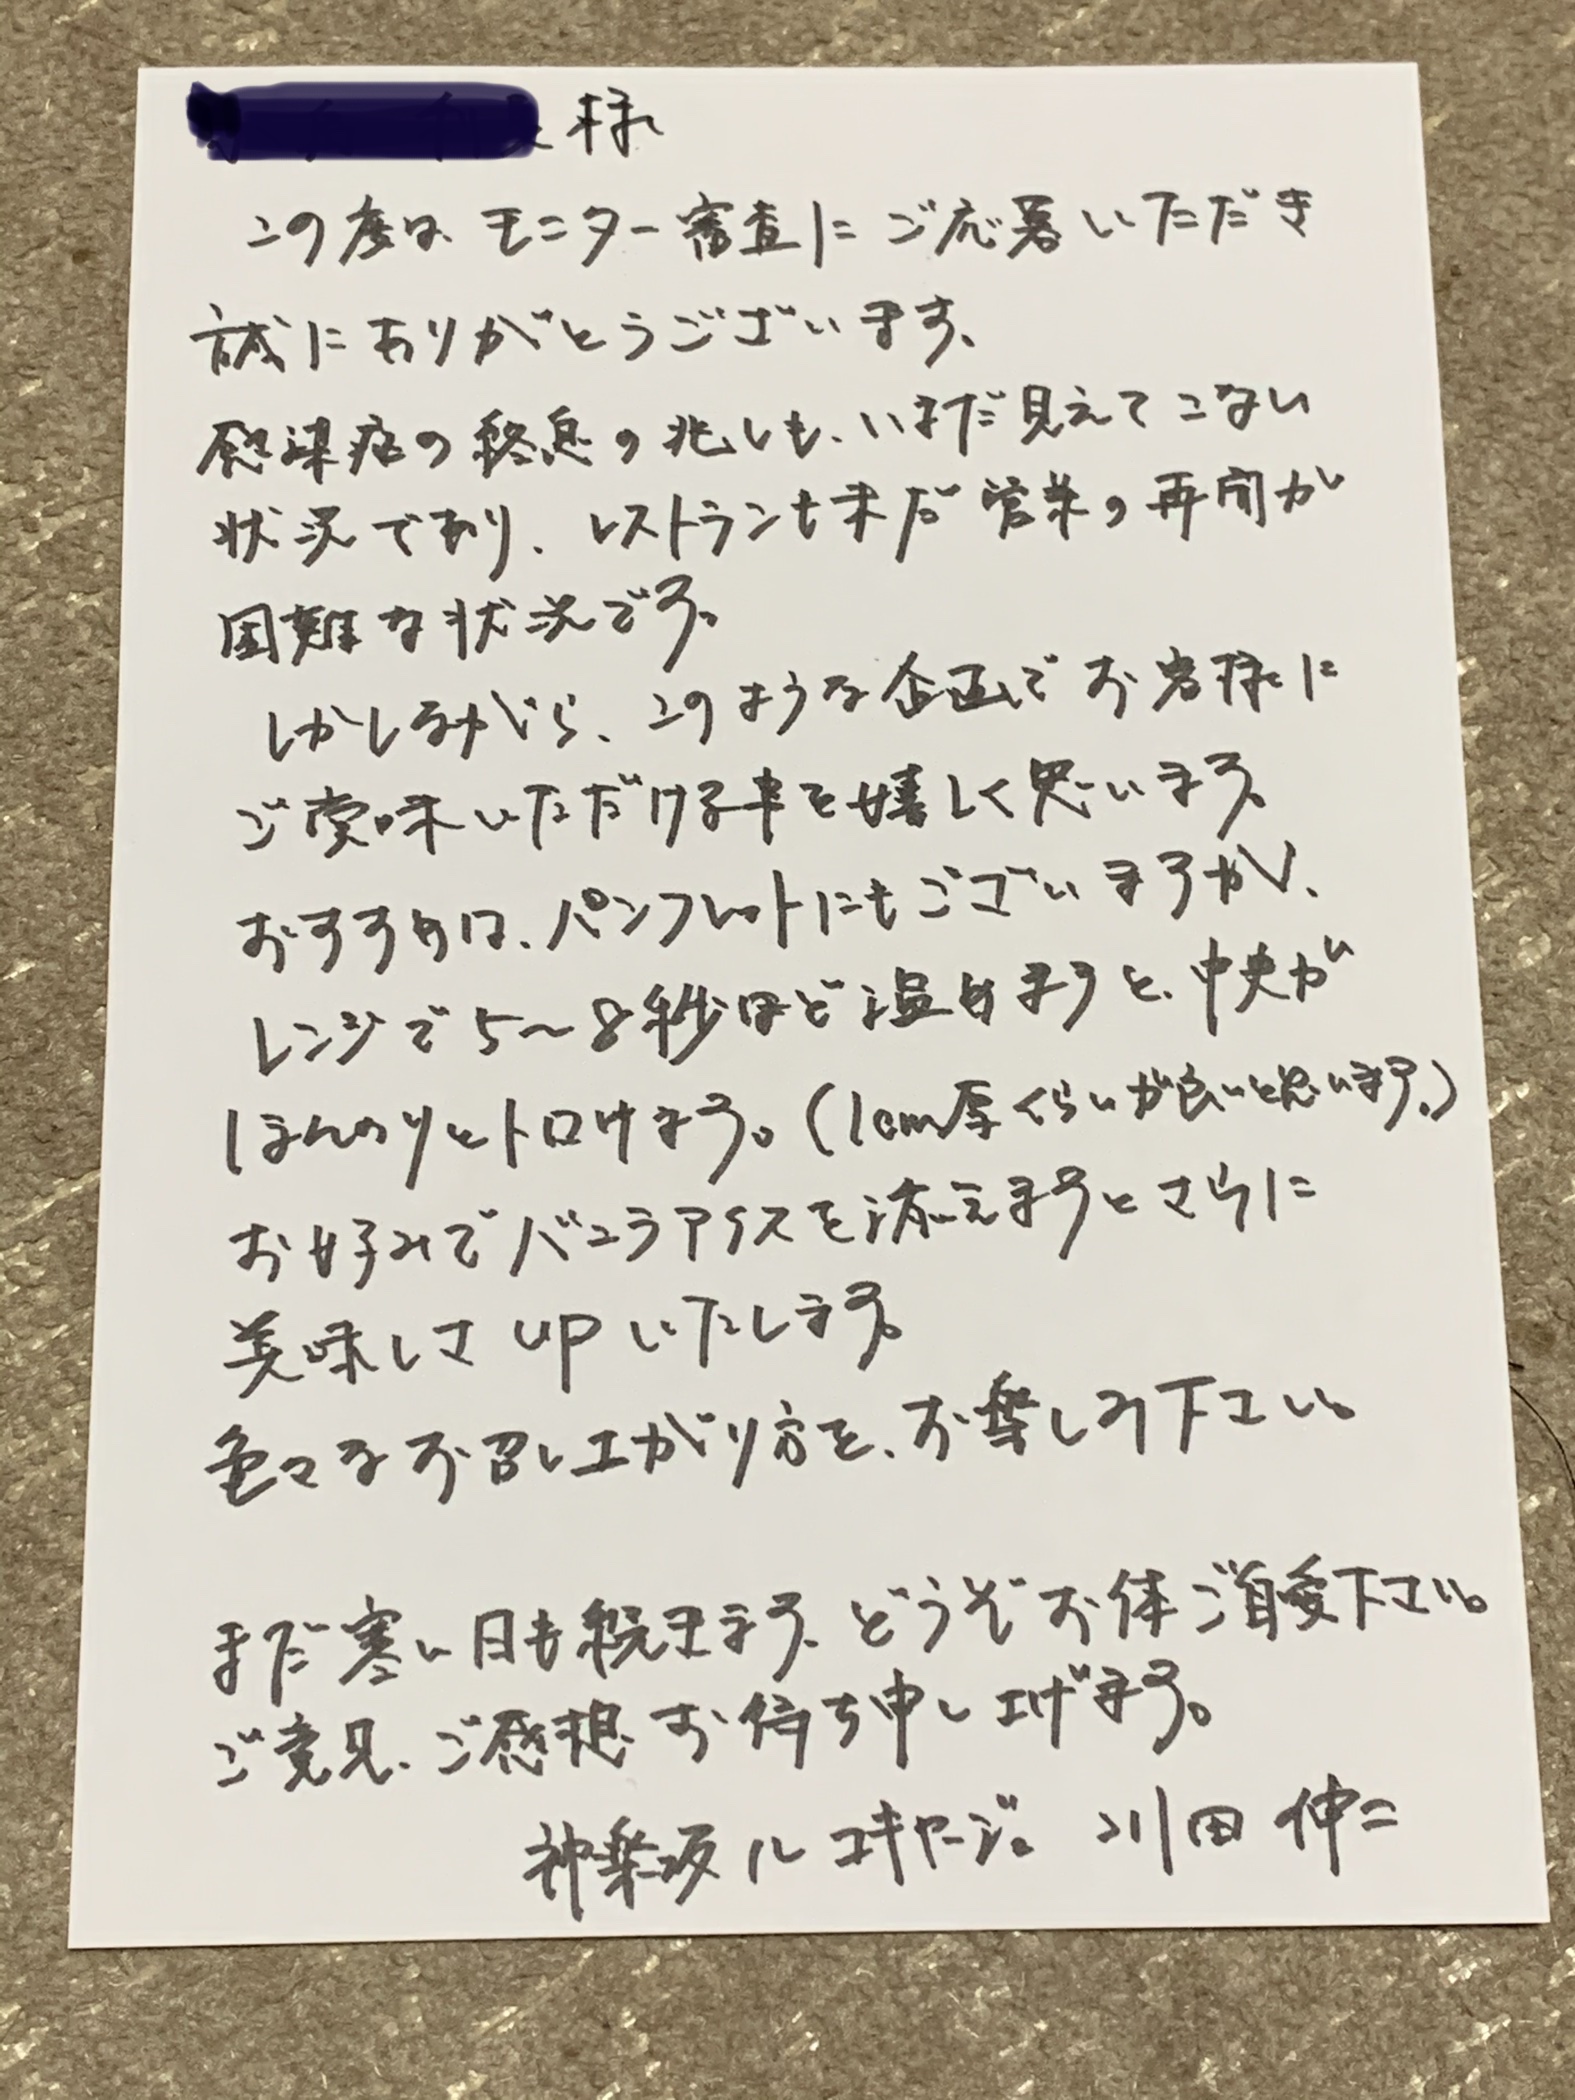 様
この度は、モニター審査にご応募いただき
誠にありがとうございます。
感染症の終息の兆しも、いまだ見えてこない
状況であり、レストランも未だ営業の再開が
困難な状況です。
しかしながら、このような企画でお客様に
ご賞味いただける事を嬉しく思います。
おすすめは、パンフレットにもございますが、
レンジで5〜8秒ほど温めますと、中央が
ほんのりとトロけます。(1cm厚くらいが良いと思います。)
お好みでバニラアイスを添えますとさらに
美味しさUPいたします。
色々なお召し上がり方を、お楽しみ下さい。
まだ寒い日も続きます、どうぞお体ご自愛下さい。
ご意見、ご感想お待ち申し上げます。
神楽坂ル コキヤージュ 川田 伸二